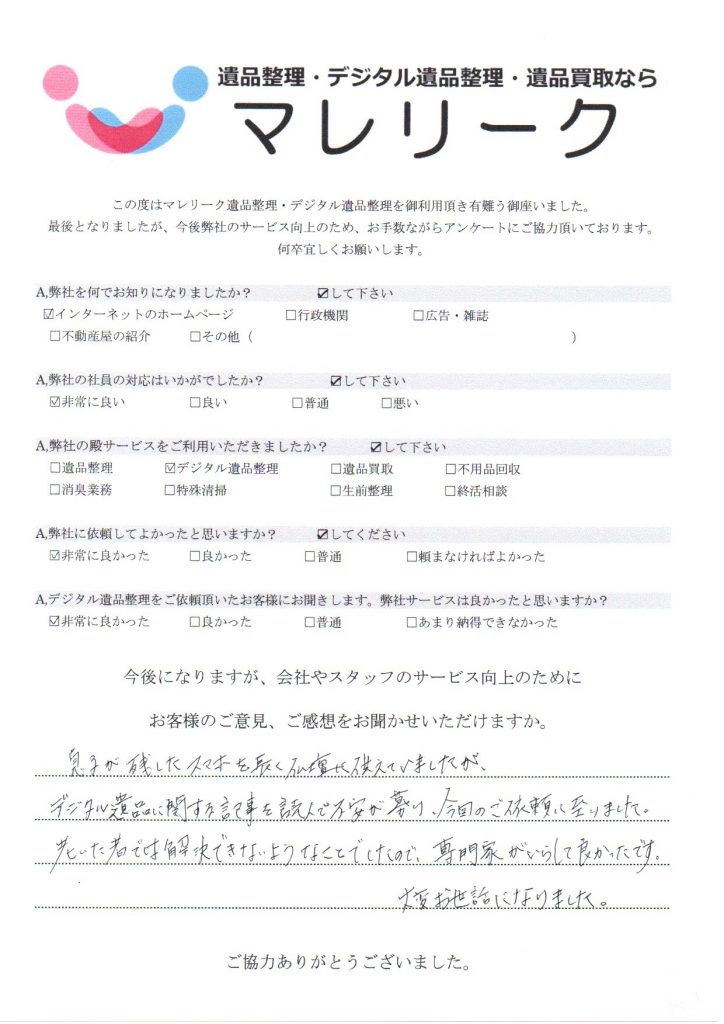 遺品整理・デジタル遺品整理・遺品買取なら
マレリーク
この度はマレリーク遺品整理・デジタル遺品整理を御利用頂き有難う御座いました。
最後となりましたが、今後弊社のサービス向上のため、お手数ながらアンケートにご協力頂いております。
何卒宜しくお願いします。
A,弊社を何でお知りになりましたか？ ☑して下さい
☑インターネットのホームページ □行政機関 □広告・雑誌
□不動産屋の紹介 □その他（ ）
A,弊社の社員の対応はいかがでしたか？ ☑して下さい
☑非常に良い □良い □普通 □悪い
A,弊社の殿サービスをご利用いただきましたか？ ☑して下さい
□遺品整理 ☑デジタル遺品整理 □遺品買取 □不用品回収
□消臭業務 □特殊清掃 □生前整理 □終活相談
A,弊社に依頼してよかったと思いますか？ ☑してください
☑非常に良かった □良かった □普通 □頼まなければよかった
A,デジタル遺品整理をご依頼頂いたお客様にお聞きします。弊社サービスは良かったと思いますか？
☑非常に良かった □良かった □普通 □あまり納得できなかった
今後になりますが、会社やスタッフのサービス向上のために
お客様のご意見、ご感想をお聞かせいただけますか。
息子が残したスマホを長く仏壇に供えていましたが、
デジタル遺品に関する記事を読んで不安が募り、今回のご依頼に至りました。
老いた者では解決できないようなことでしたので、専門家がいらして良かったです。
大変お世話になりました。
ご協力ありがとうございました。